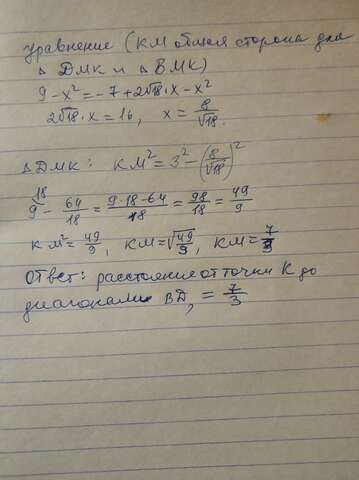 уравнение (КМ общая сторона для
△ DMK и △ BMK)
9 - x² = -7 + 2√18 · x - x²
2√18 · x = 16, x = 8/√18.
△DMK: KM² = 3² - (8/√18)²
9 - 64/18 = (9·18-64)/18 = 98/18 = 49/9
KM² = 49/9, KM = √49/9, KM = 7/3
Ответ: расстояние от точки К до
диагонали BD, = 7/3